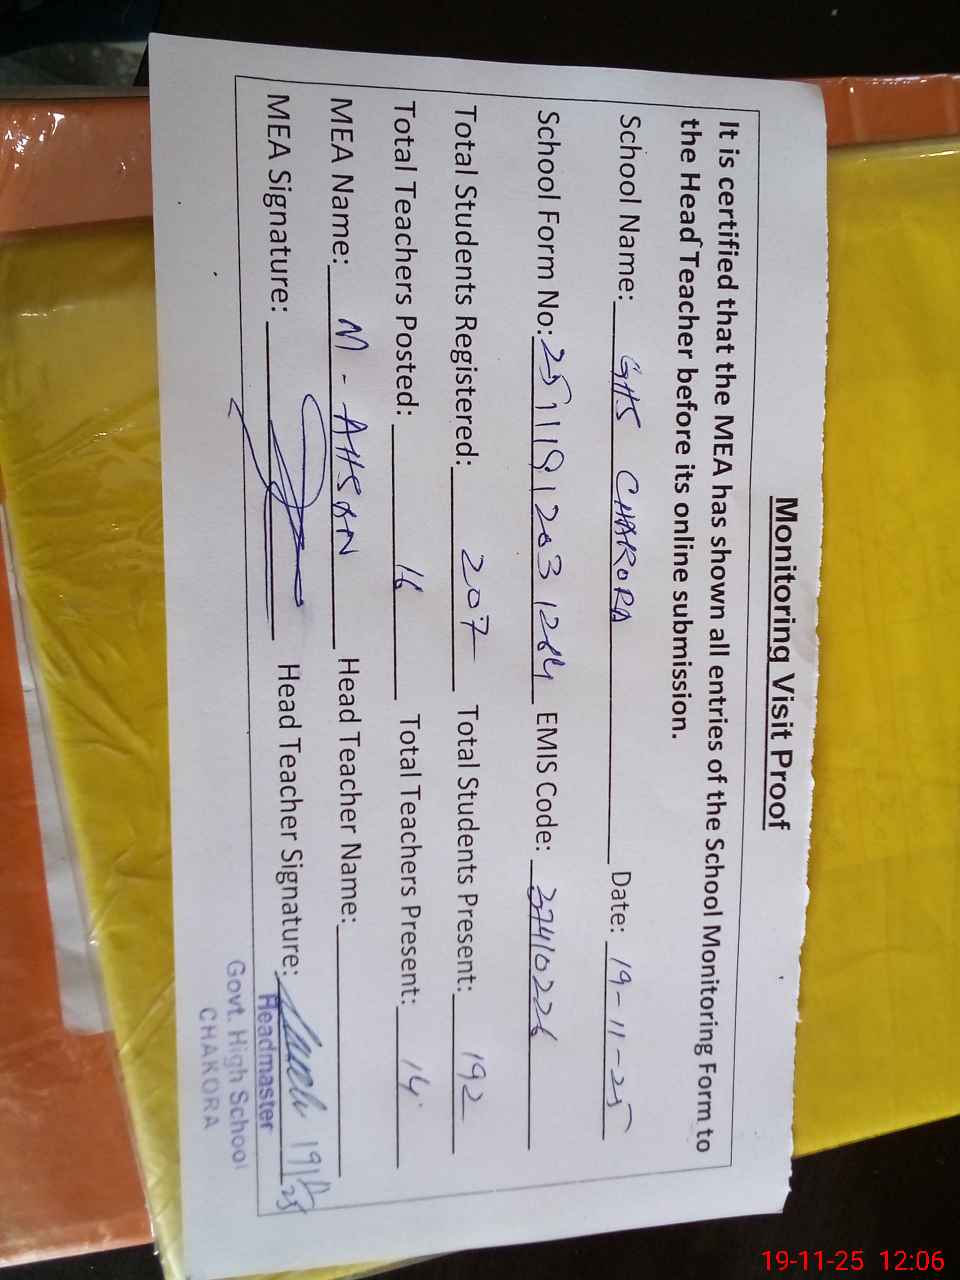 Monitoring Visit Proof
It is certified that the MEA has shown all entries of the School Monitoring Form to
the Head Teacher before its online submission.
School Name: GHS CHAKORA Date: 19-11-25
School Form No: 251119 1203 1264 EMIS Code: 37410226
Total Students Registered: 207 Total Students Present: 192
Total Teachers Posted: 16 Total Teachers Present: 14
MEA Name: M - AHSAN Head Teacher Name:
MEA Signature: Head Teacher Signature:
Headmaster
Govt. High School
CHAKORA
19-11-25 12:06